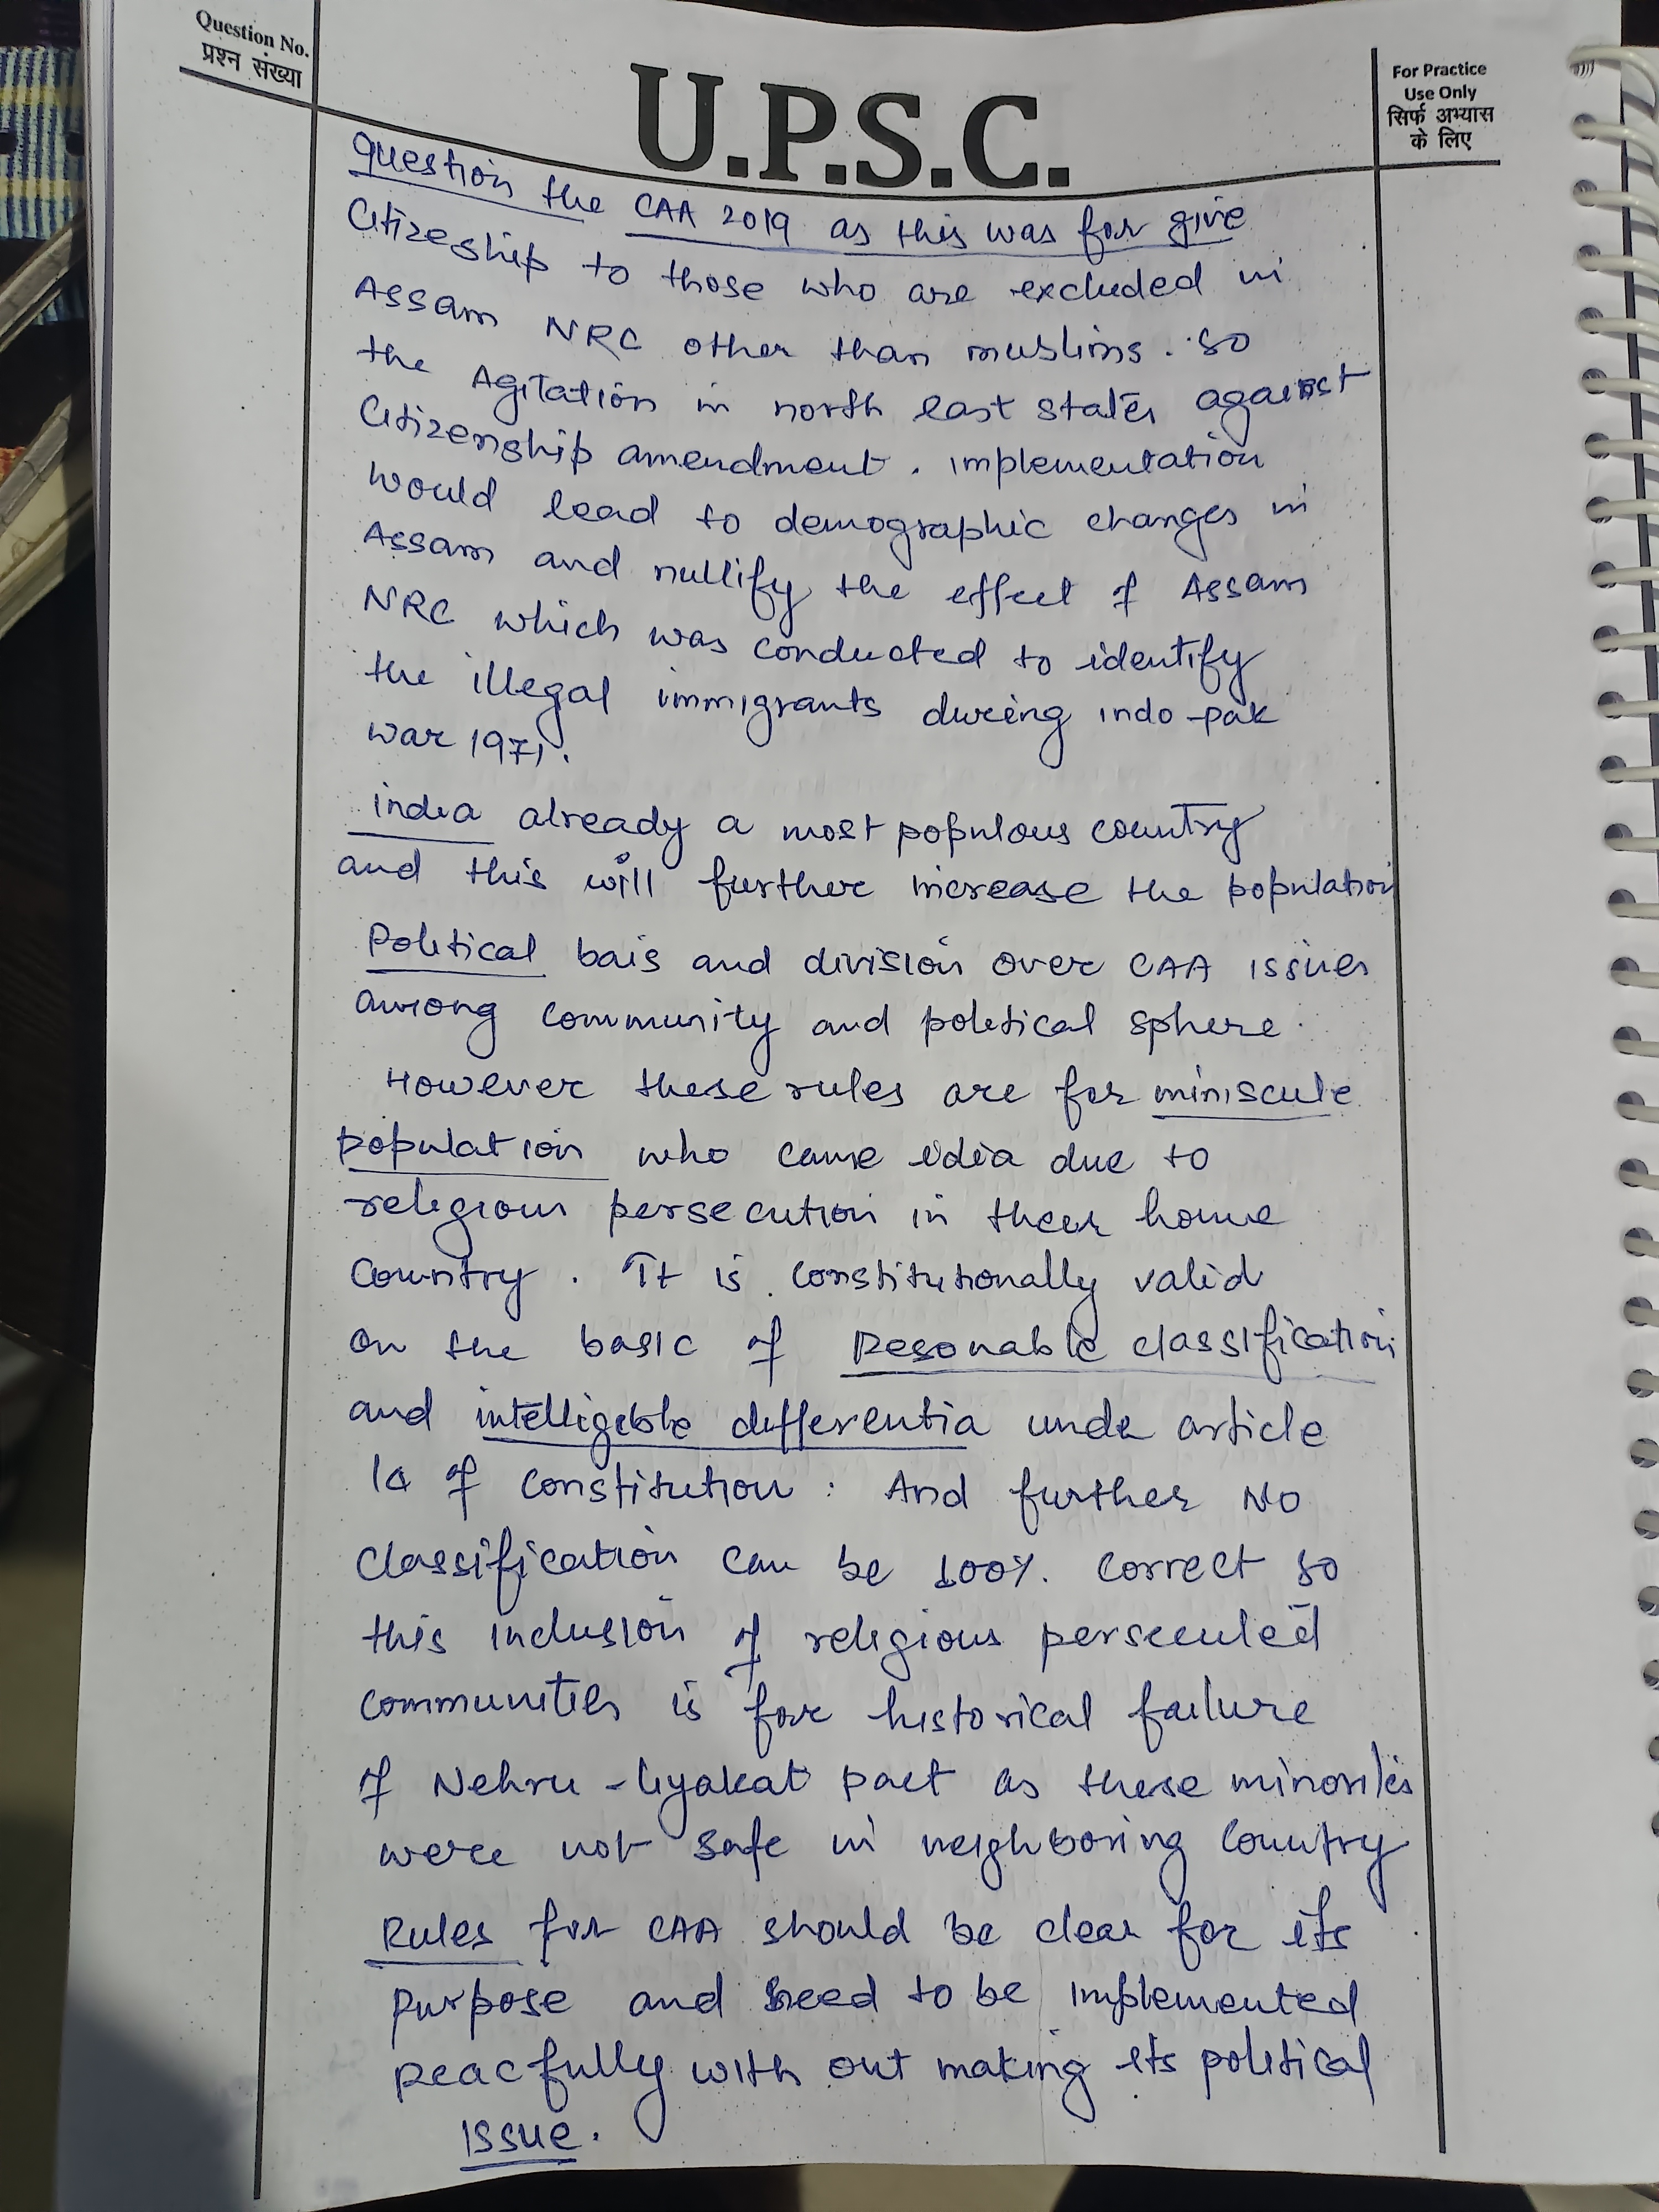 Question No.
प्रश्न संख्या
U.P.S.C.
For Practice
Use Only
सिर्फ अभ्यास
के लिए
Question the CAA 2019 as this was for give
Citizeship to those who are excluded in
Assam NRC other than muslims. so
the Agitation in north east states against
Citizenship amendment. implementation
would lead to demographic changes in
Assam and nullify the effect of Assam
NRC which was conducted to identify
the illegal immigrants during indo-pak
war 1971.
india already a most populous country
and this will further increase the population
Political bais and division over CAA issues
among community and political sphere.
However these rules are for miniscule
population who came idia due to
religious persecution in their home
Country. It is constitutionally valid
on the basic of Resonable classification
and intelligible differentia unde article
14 of Constitution. And further No
classification can be 100% correct so
this inclusion of religious persecuted
communities is for historical failure
of Nehru-liyakat pact as these minorities
were not safe in neighboring Country
Rules for CAA should be clear for its
purpose and need to be implemented
peacfully with out making its political
issue.